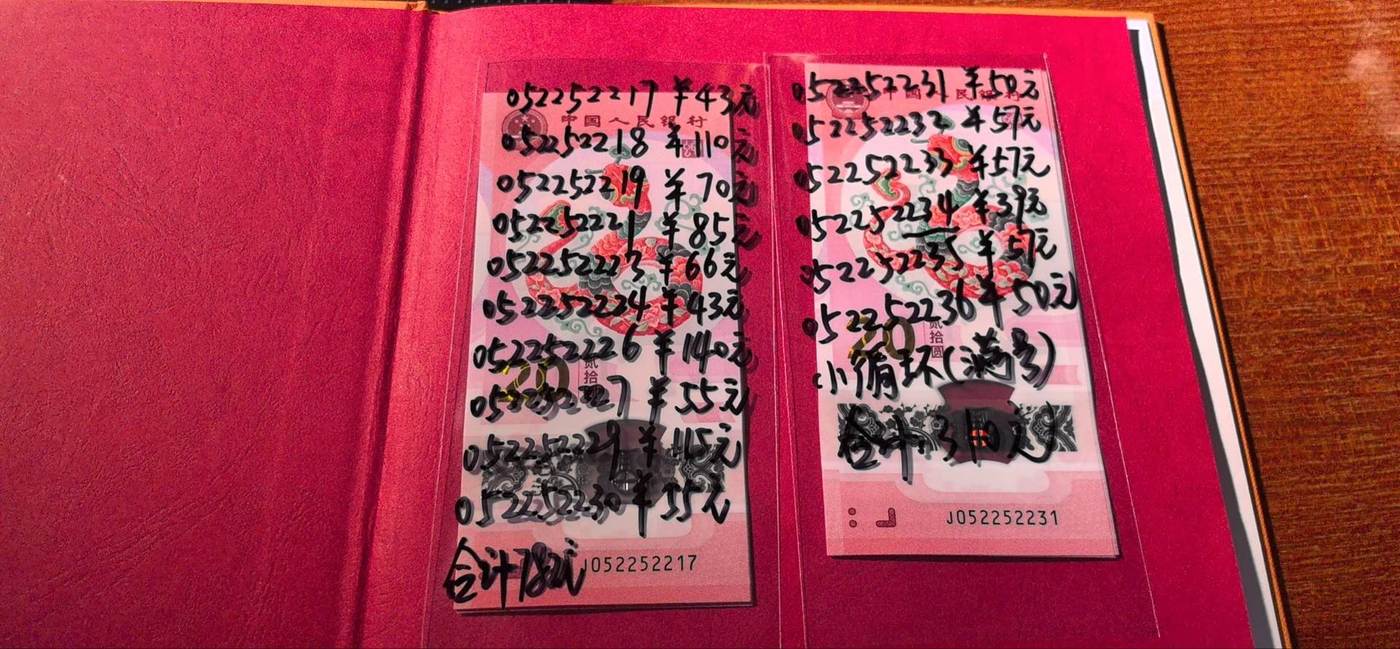 052252217 ¥43元
中国人民银行
052252218 ¥110元
052252219 ¥70元
052252221 ¥85元
052252223 ¥66元
052252224 ¥43元
052252226 ¥140元
20
贰拾
052252227 ¥55元
052252229 ¥115元
052252230 ¥55元
合计782元
J052252217
052252231 ¥50元
中国人民银行
052252232 ¥57元
052252233 ¥57元
052252234 ¥39元
052252235 ¥57元
052252236 ¥50元
20
贰拾圆
小循环(满号)
合计:310元
J052252231